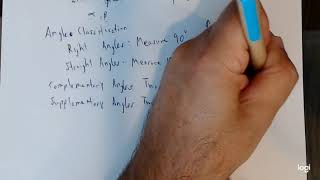 α, β
Angle Classification
Right Angles - Measure 90°
Straight Angles - Measure
Complementary Angles
Supplementary Angles
logi